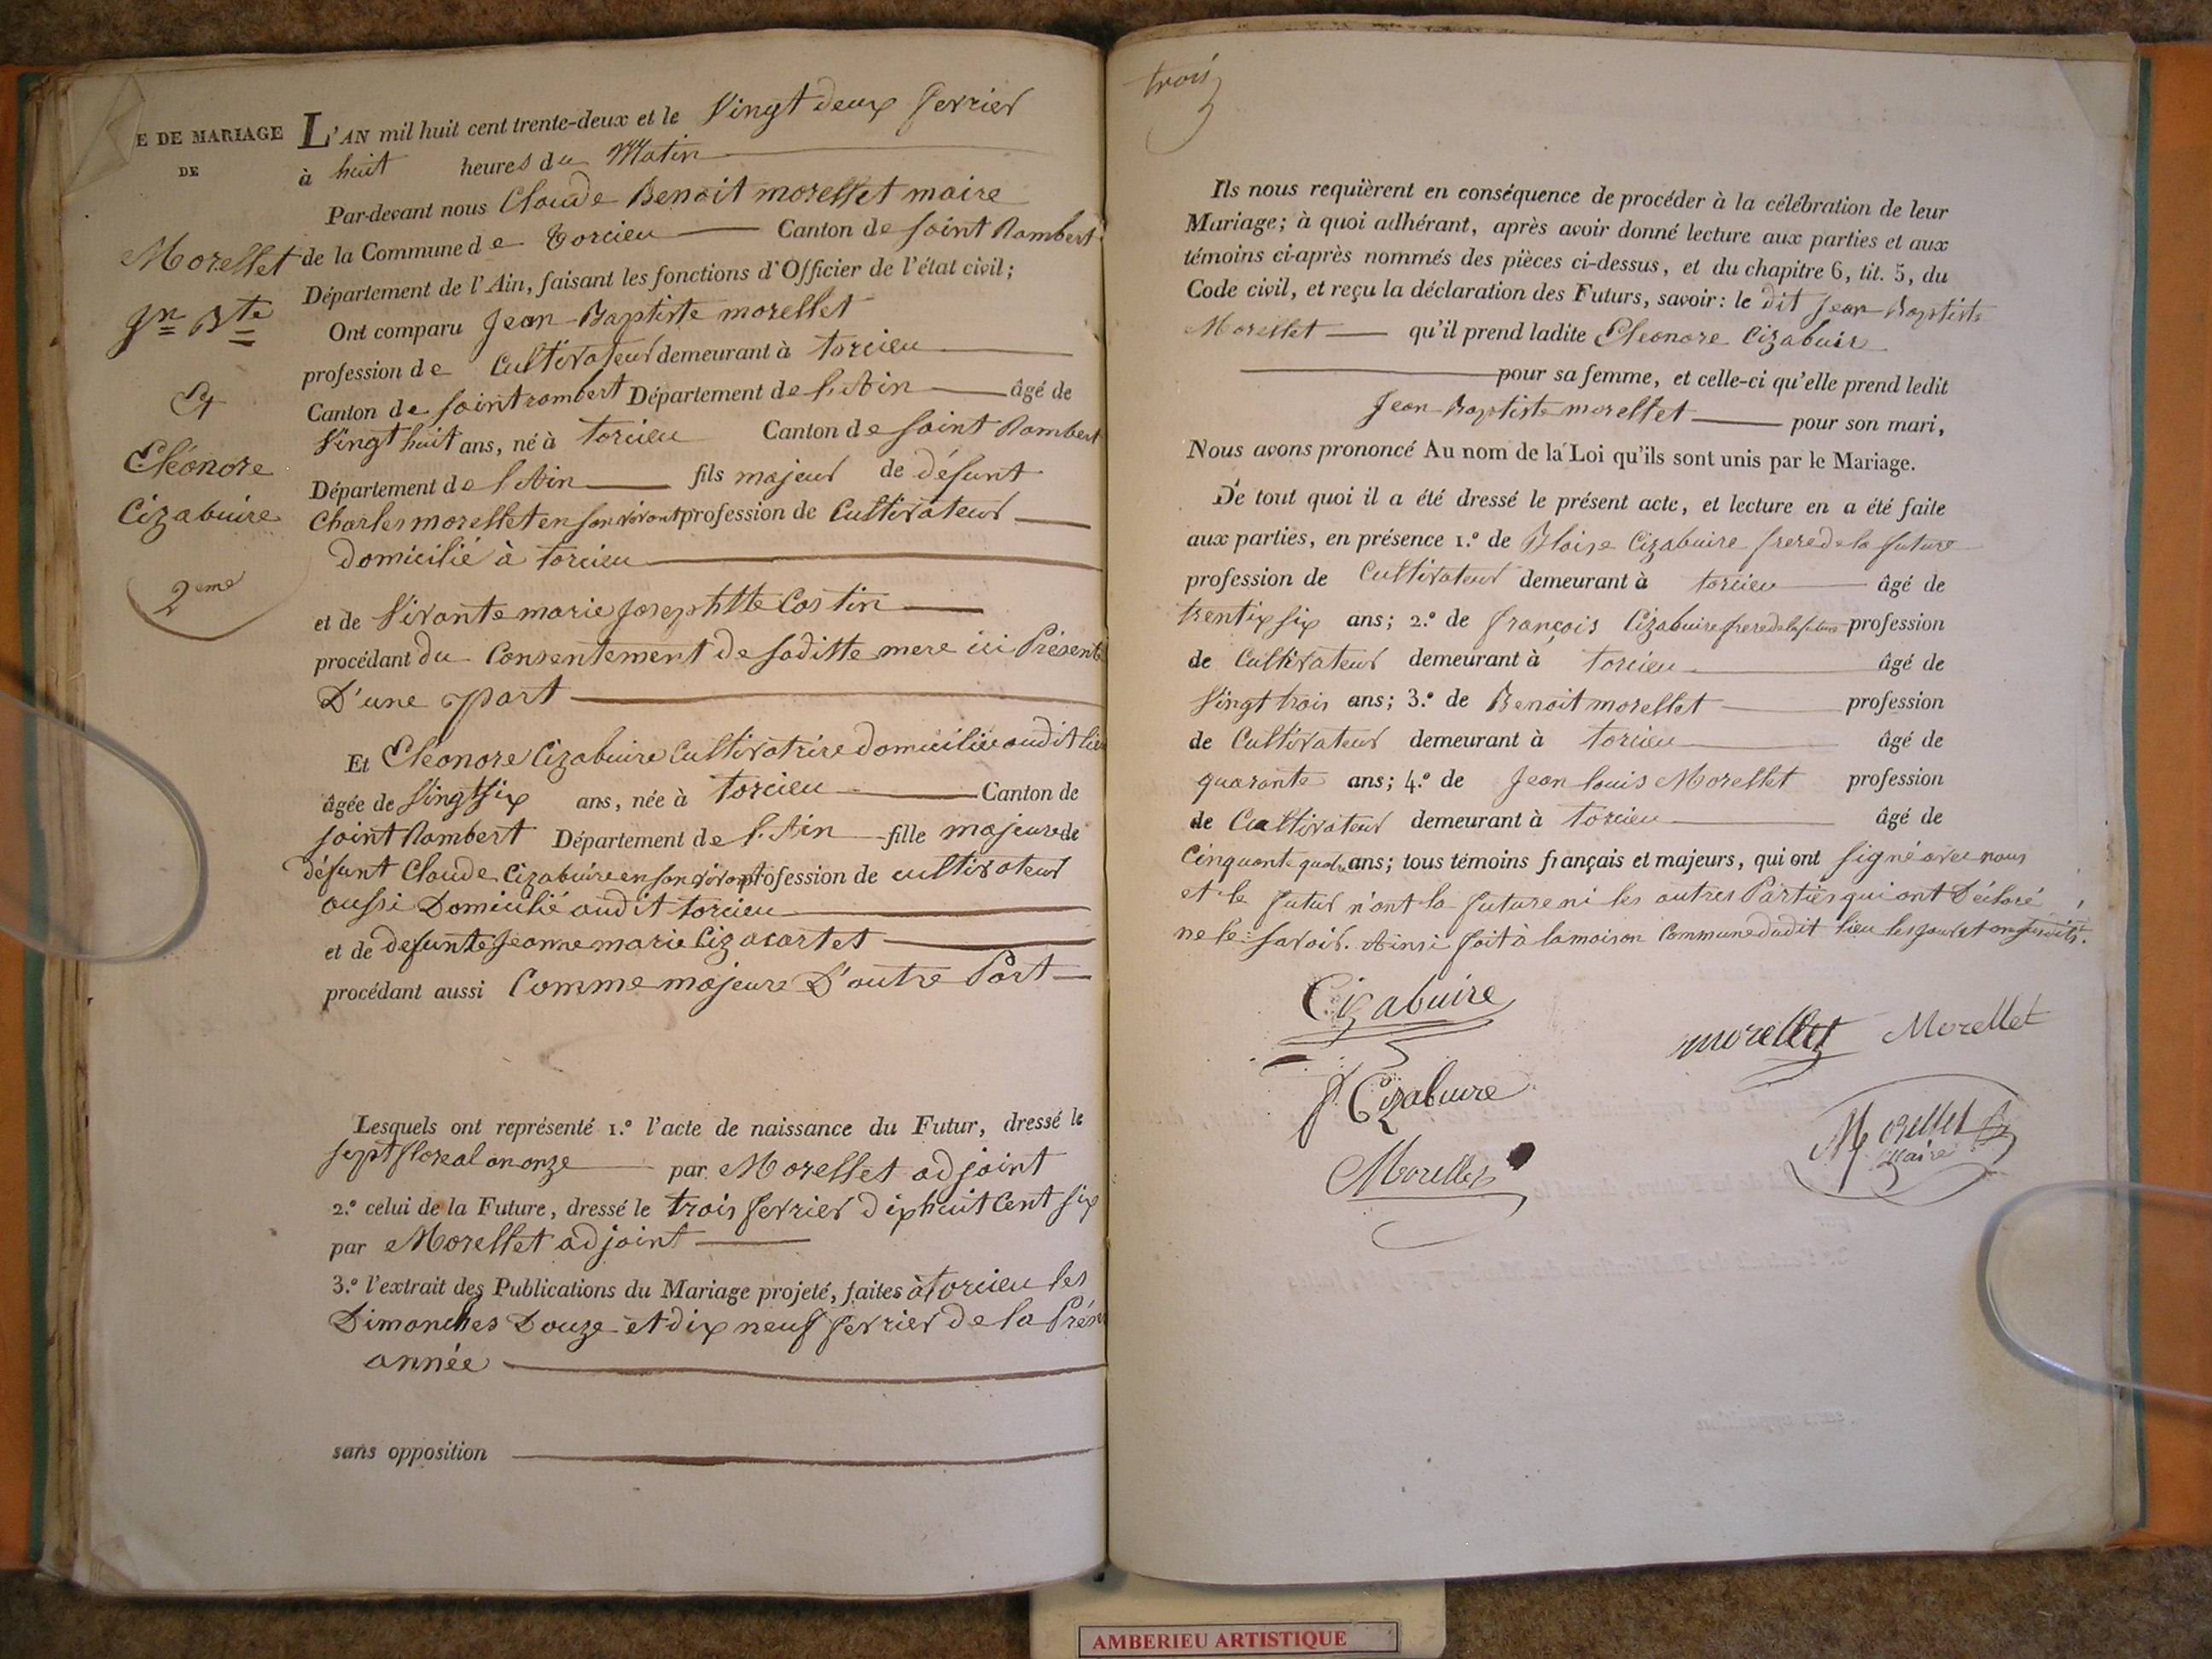 E DE MARIAGE
DE
Morellet
Jn Bte
Et
Eléonore
Cizabuire
2eme
L'AN mil huit cent trente-deux et le Vingt deux fevrier
à huit heures du Matin
Par-devant nous Claude Benoit morellet maire
de la Commune de torcieu Canton de saint Rambert
Département de l'Ain, faisant les fonctions d'Officier de l'état civil;
Ont comparu Jean-Baptiste morellet
profession de Cultivateur demeurant à torcieu
Canton de saint rambert Département de l'Ain âgé de
Vingt huit ans, né à torcieu Canton de saint Rambert
Département de l'Ain fils majeur de défunt
Charles morellet en son vivant profession de Cultivateur
domicilié à torcieu
et de Vivante marie Josephtte Costin
procédant du Consentement de saditte mere ici Présente
D'une part
Et Eléonore Cizabuire Cultivatrire domiciliée audit lieu
âgée de Vingt six ans, née à torcieu Canton de
saint Rambert Département de l'Ain fille majeure de
défunt Claude Cizabuire en son vivant profession de cultivateur
aussi Domicilié audit torcieu
et de defunte Jeanne marie Cizacartet
procédant aussi Comme majeure D'autre Part
Lesquels ont représenté 1.° l'acte de naissance du Futur, dressé le
sept floreal an onze par Morellet adjoint
2.° celui de la Future, dressé le trois fevrier dixhuit Cent six
par Morellet adjoint
3.° l'extrait des Publications du Mariage projeté, faites à torcieu les
Dimanches Douze et dix neuf fevrier de la
année
sans opposition
trois
Ils nous requièrent en conséquence de procéder à la célébration de leur
Mariage; à quoi adhérant, après avoir donné lecture aux parties et aux
témoins ci-après nommés des pièces ci-dessus, et du chapitre 6, tit. 5, du
Code civil, et reçu la déclaration des Futurs, savoir: le dit Jean-Baptiste
Morellet qu'il prend ladite Eleonore Cizabuire
pour sa femme, et celle-ci qu'elle prend ledit
Jean-Baptiste morellet pour son mari,
Nous avons prononcé Au nom de la Loi qu'ils sont unis par le Mariage.
De tout quoi il a été dressé le présent acte, et lecture en a été faite
aux parties, en présence 1.° de Blaise Cizabuire frere de la future
profession de Cultivateur demeurant à torcieu âgé de
trentix six ans; 2.° de françois Cizabuire frere de la future profession
de Cultivateur demeurant à torcieu âgé de
Vingt trois ans; 3.° de Benoit morellet profession
de Cultivateur demeurant à torcieu âgé de
quarante ans; 4.° de Jean louis Morellet profession
de Cultivateur demeurant à torcieu âgé de
Cinquante quatre ans; tous témoins français et majeurs, qui ont signé avec nous
et le futur n'ont la future ni les autres Parties qui ont Déclaré
ne le savoir. Ainsi fait à la maison Commune dudit lieu les jour et an susdits.
Cizabuire
morellet Morellet
f Cizabuire
Morellet
maire
Morellet
AMBERIEU ARTISTIQUE